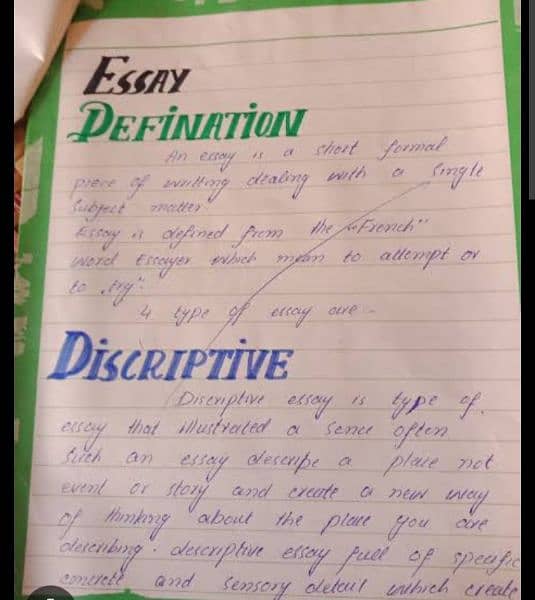 ESSAY
DEFINATION
An essay is a short formal
piece of writting dealing with a single
subject matter.
Essay is defined from the "French"
word Essayer which mean to attempt or
to "try".
4 type of essay are -
DISCRIPTIVE
Discriptive essay is type of
essay that illustrated a sence often
such an essay descripe a place not
event or story and create a new way
of thinking about the place you are
describing. descriptive essay full of specific
concrete and sensory detail which create